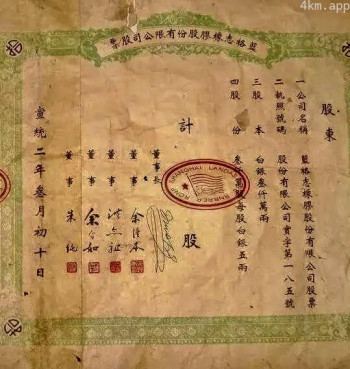 4km.app
藍格志橡膠股份有限公司股票
股東
一公司名稱 藍格志橡膠股份有限公司股票
二執照號碼 股份有限公司實字第一八五號
三股本 白銀叁仟萬兩
四股份 叁 萬股每股白銀五兩
計 股
SHANGHAI LANGAR RUBBER
董事長
董事 余
董事 洪
董事 余 如
董事 朱
宣統二年叁月初十日